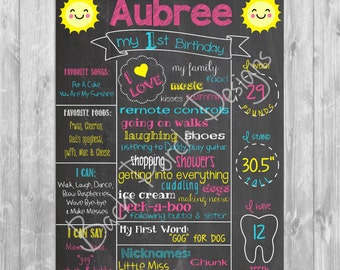 Aubree
my 1st Birthday
FAVORITE SONGS:
Pat A Cake
You Are My Sunshine
FAVORITE FOODS:
Fruits, Cheerios,
Dad's spaghetti,
puffs, Mac & Cheese
I CAN:
Walk, Laugh, Dance,
Blow Raspberries,
Wave Bye-Bye
& Make Messes
I CAN SAY:
Mama
I LOVE
my family
food
music
kisses
swimming
remote controls
going on walks
laughing shoes
listening to Daddy play guitar
shopping showers
getting into everything
cuddling dogs
ice cream
making noise
peek-a-boo
following bubba & sister
My First Word:
"GOG" FOR DOG
Nicknames:
Little Miss
Chunk
I weigh
29
POUNDS
I STAND
30.5"
TALL
I HAVE
12
TEETH